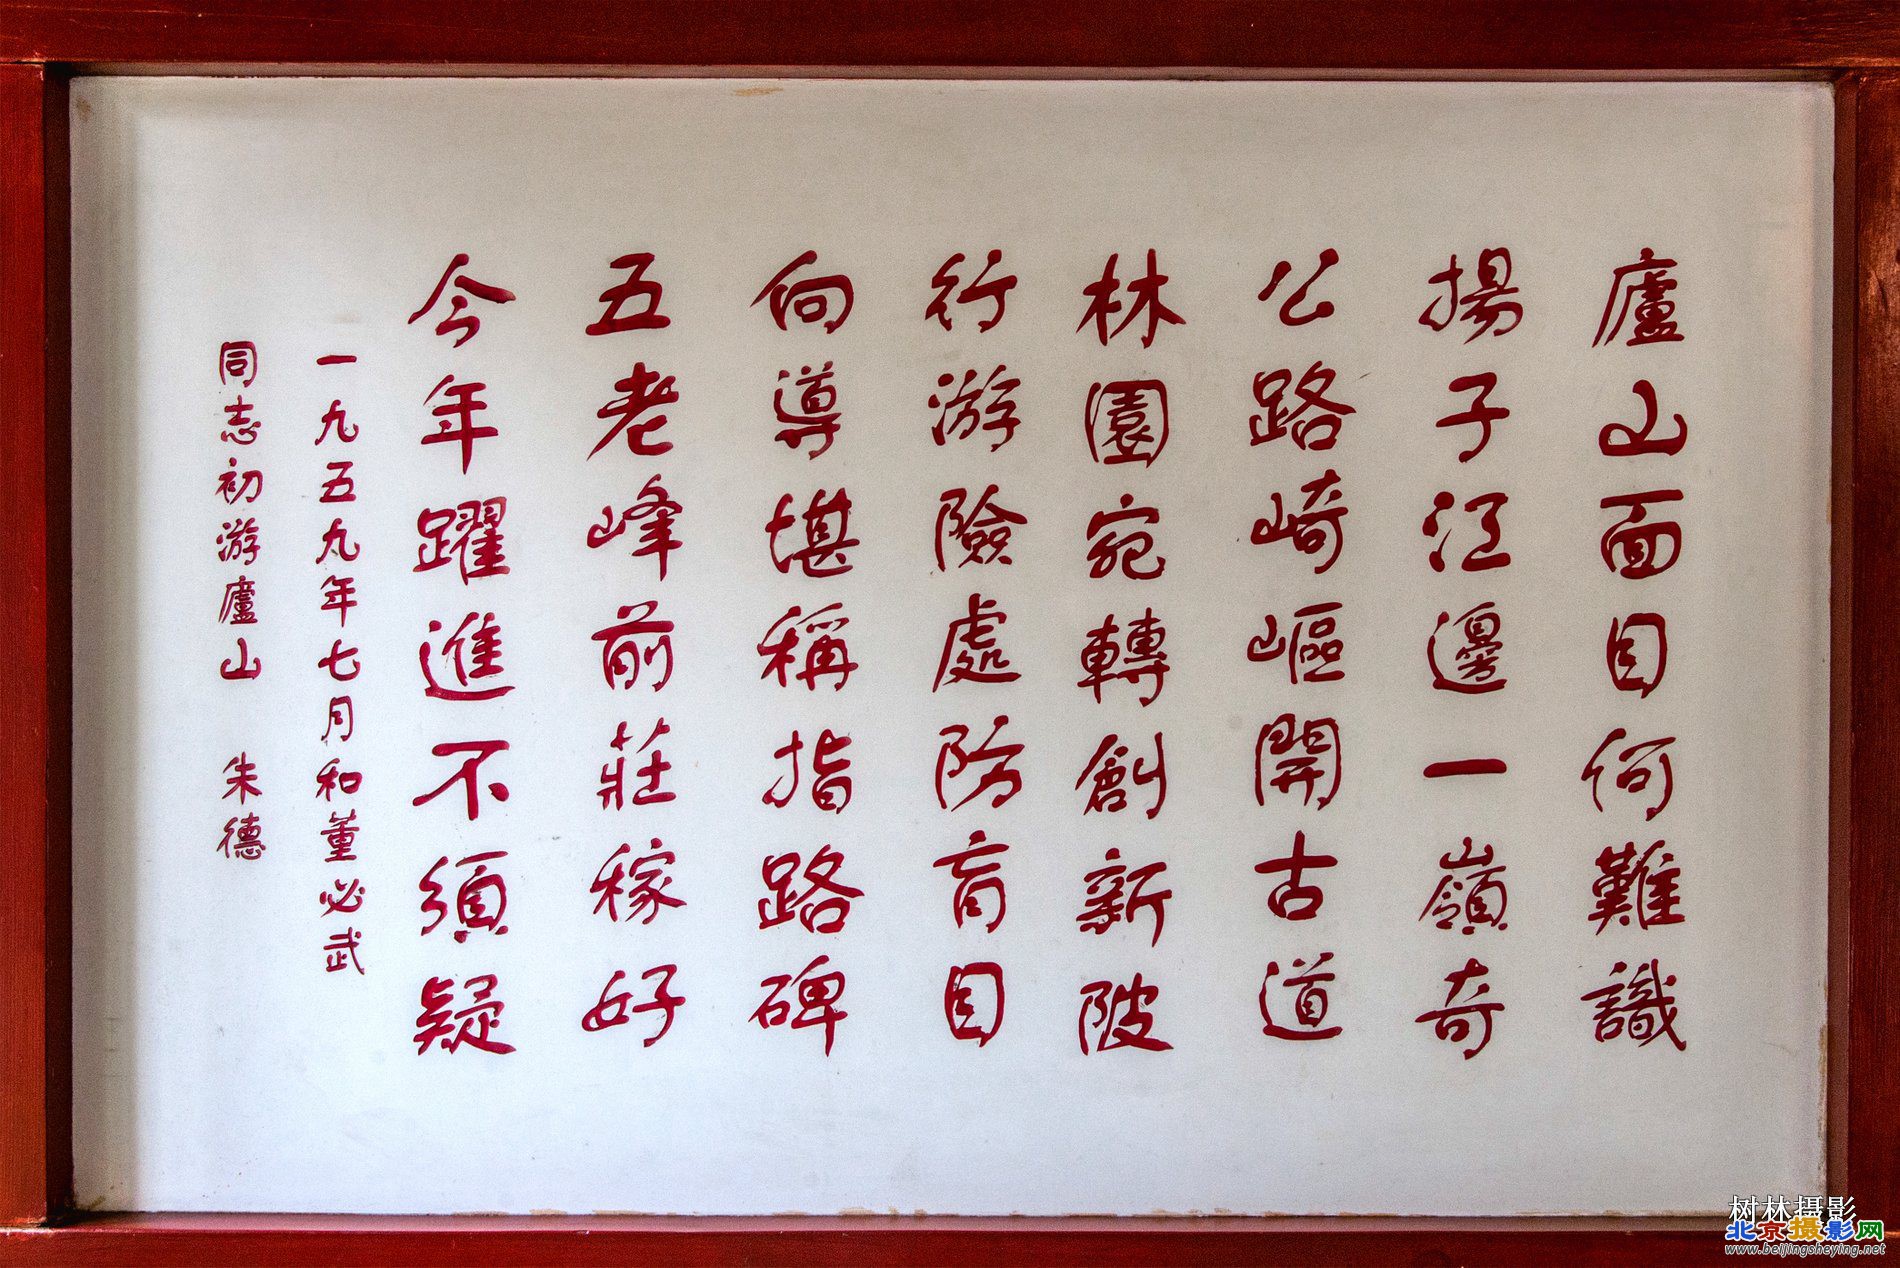 廬山面目何難識
揚子江邊一嶺奇
公路崎嶇開古道
林園宛轉創新陂
行游險處防盲目
向導堪稱指路碑
五老峰前莊稼好
今年躍進不須疑
一九五九年七月和董必武
同志初游廬山 朱德
树林摄影
北京摄影网
www.beijingsheying.net